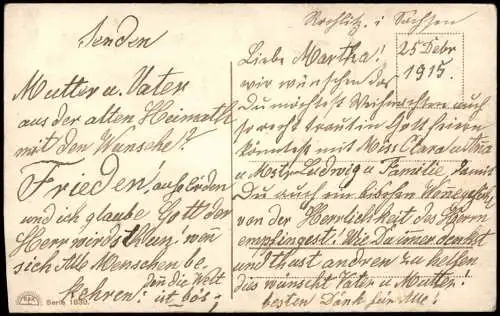 Rochlitz. i Sachsen
25 Debr
1915.
Liebe Martha!
wir wünschen das
Du möchtest Weihnachten auch
so recht traut in Gott feiern
könntest mit Miss Clara u Anna
u Mstr Ludwig u Familie, damit
Du auch ein bischen
von der Herrlichkeit des Herrn
empfingest! Wie Du immer denkst
und thust andren zu helfen
dies wünscht Vater u Mutter!
besten Dank für Alle!
Senden
Mutter u. Vater
aus der alten Heimath
mit den Wunsche!?
Frieden! auf Erden
und ich glaube Gott der
Herr wirds thun! wenn
sich Alle Menschen be
kehren! denn die Welt
ist bös!
Serie 1630.